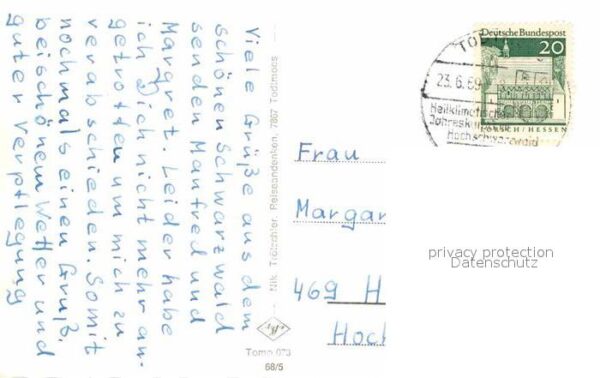 Viele Grüße aus dem
schönen Schwarzwald
senden Manfred und
Margret. Leider habe
ich Dich nicht mehr an-
getroffen um mich zu
verabschieden. Somit
nochmals einen Gruß.
bei schönem Wetter und
guter Verpflegung
Nik. Trötschler, Reiseandenken, 7867 Todtmoos
Agfa
Tomo 073
68/5
Deutsche Bundespost
20
LORSCH/HESSEN
23.6.69
Heilklimatischer
Jahreskurort
Hochschwarzwald
Frau
Margar
469 H
Hoch
privacy protection
Datenschutz